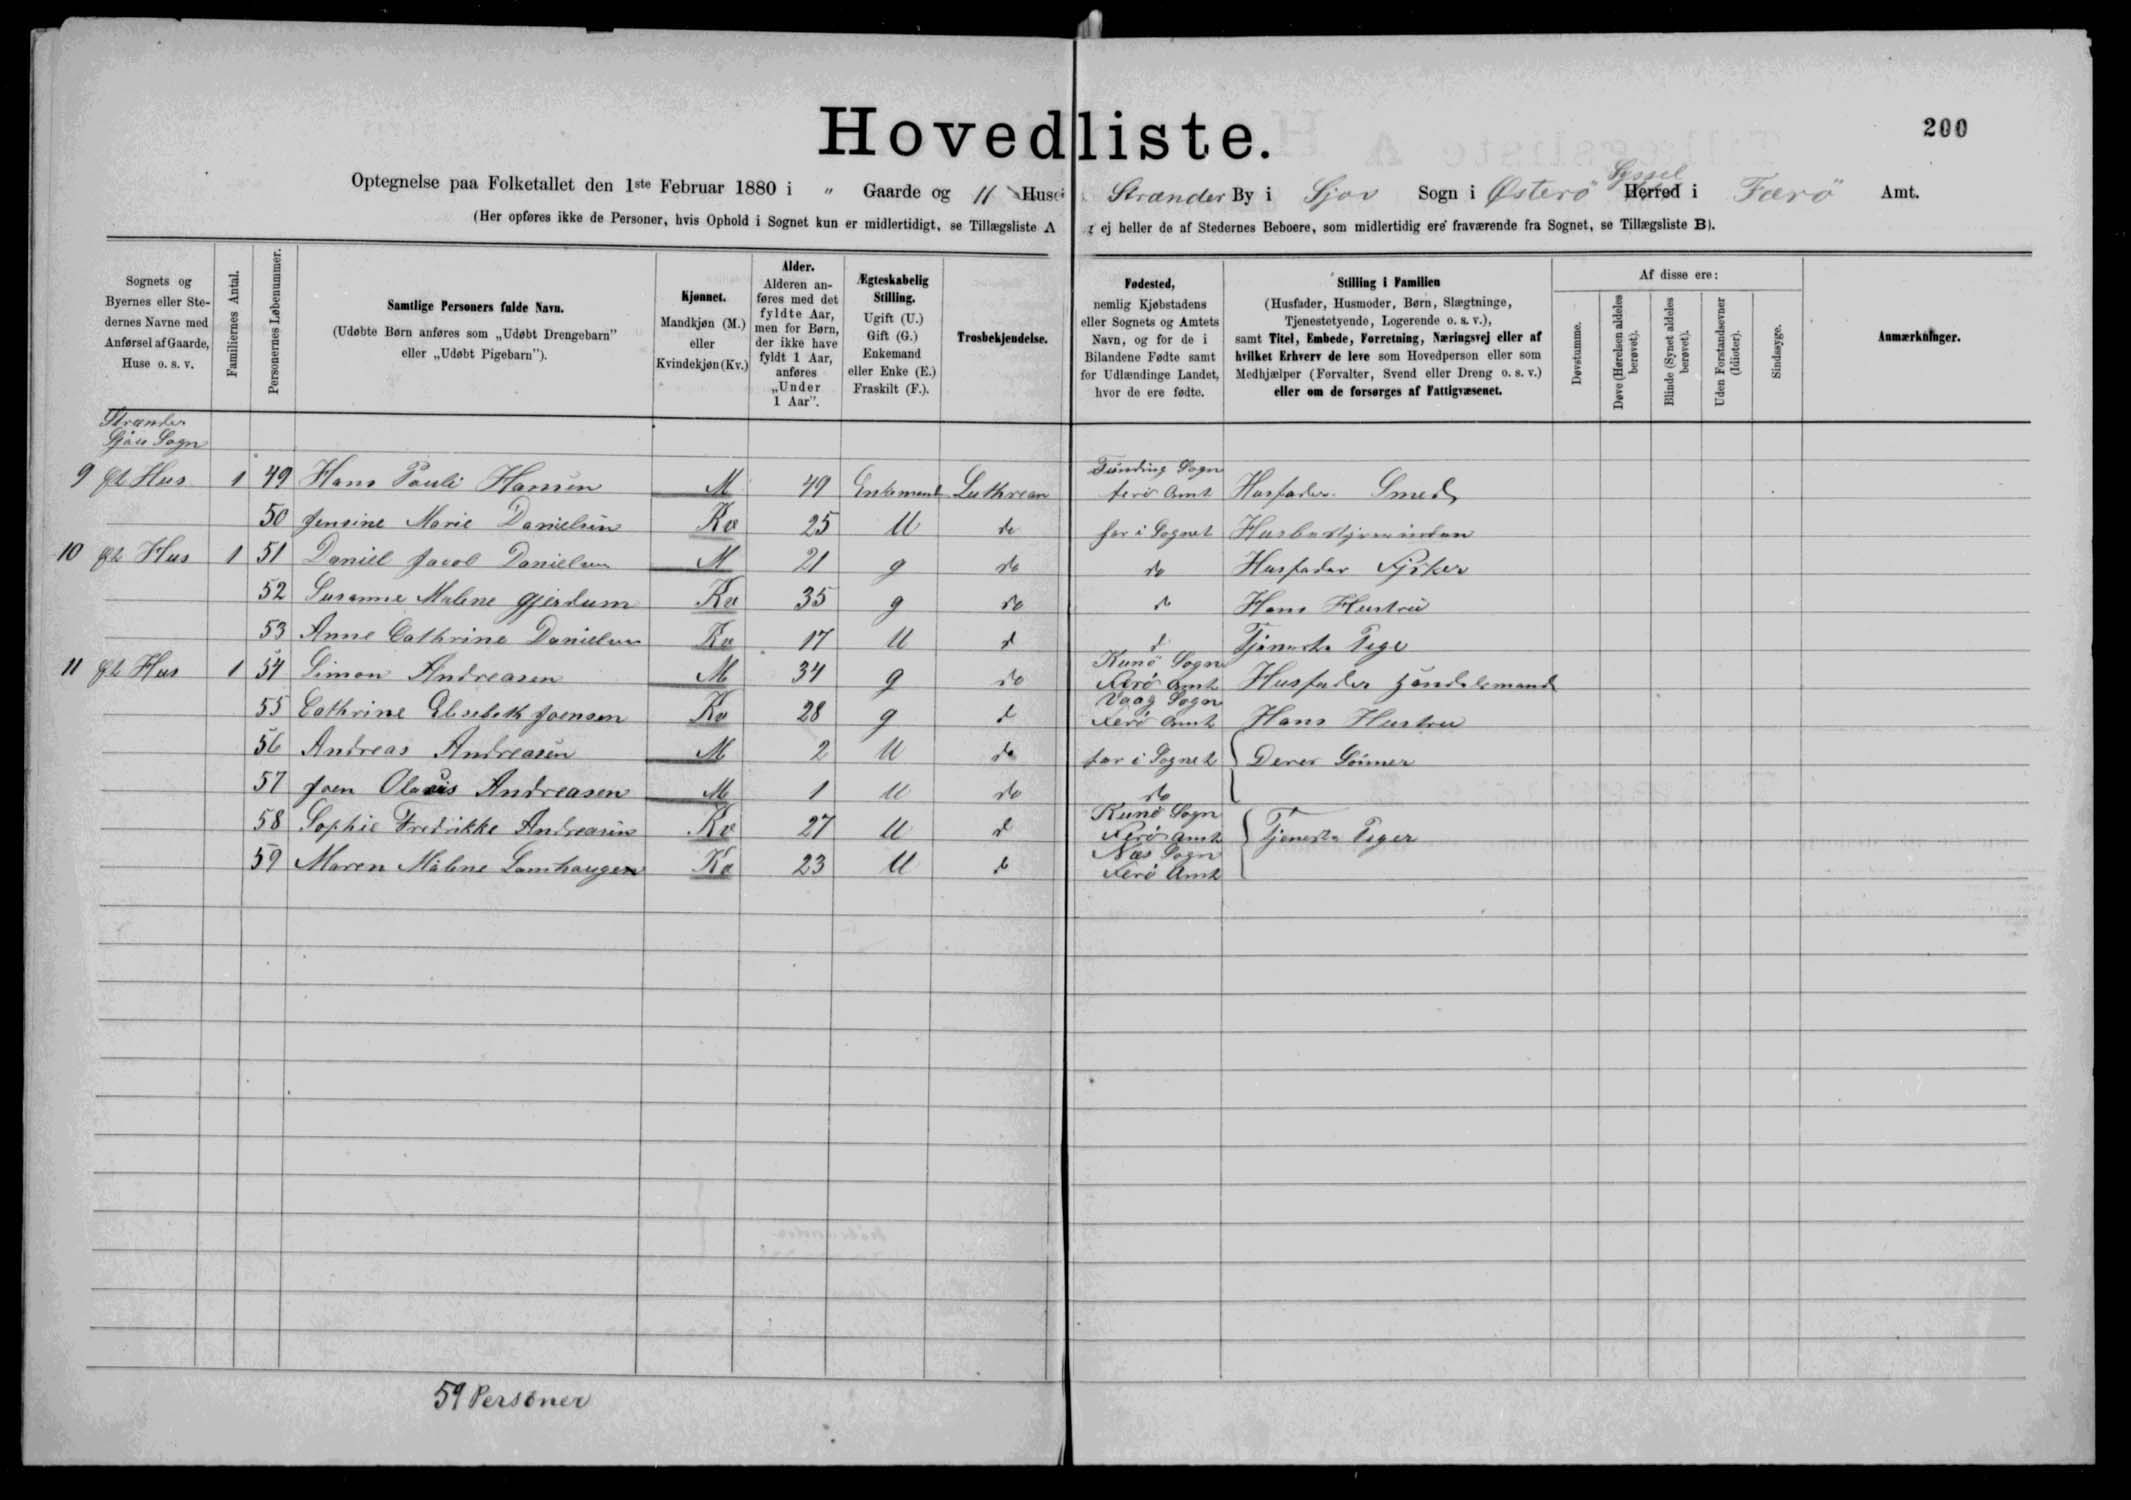 200
Hovedliste.
Optegnelse paa Folketallet den 1ste Februar 1880 i " Gaarde og 11 Huse i Strænder By i Sjov Sogn i Østerö Herred Syssel i Færö Amt.
(Her opføres ikke de Personer, hvis Ophold i Sognet kun er midlertidigt, se Tillægsliste A ej heller de af Stedernes Beboere, som midlertidig ere fraværende fra Sognet, se Tillægsliste B).
Sognets og Byernes eller Stedernes Navne med Anførsel af Gaarde, Huse o. s. v.
Familiernes Antal.
Personernes Løbenummer.
Samtlige Personers fulde Navn.
(Udøbte Børn anføres som „Udøbt Drengebarn" eller „Udøbt Pigebarn").
Kjønnet.
Mandkjøn (M.) eller Kvindekjøn (Kv.)
Alder.
Alderen anføres med det fyldte Aar, men for Børn, der ikke have fyldt 1 Aar, anføres „Under 1 Aar".
Ægteskabelig Stilling.
Ugift (U.) Gift (G.) Enkemand eller Enke (E.) Fraskilt (F.).
Trosbekjendelse.
Fødested,
nemlig Kjøbstadens eller Sognets og Amtets Navn, og for de i Bilandene Fødte samt for Udlændinge Landet, hvor de ere fødte.
Stilling i Familien
(Husfader, Husmoder, Børn, Slægtninge, Tjenestetyende, Logerende o. s. v.),
samt Titel, Embede, Forretning, Næringsvej eller af hvilket Erhverv de leve som Hovedperson eller som Medhjælper (Forvalter, Svend eller Dreng o. s. v.) eller om de forsørges af Fattigvæsenet.
Af disse ere:
Døvstumme.
Døve (Hørelsen aldeles berøvet).
Blinde (Synet aldeles berøvet).
Uden Forstandsevner (Idioter).
Sindssyge.
Anmærkninger.
Strænder
Sjov Sogn
9 Hus 1 49 Hans Pauli Hansen M 49 Enkemand Luthrean Funding Sogn Ferö Amt Husfader Smed
50 Jensine Marie Danielsen Kv 25 U do her i Sognet Husbestyrerinden
10 Hus 1 51 Daniel Jacob Danielsen M 21 g do do Husfader Fisker
52 Susanne Malene Gjerdum Kv 35 g do do Hans Hustru
53 Anne Cathrine Danielsen Kv 17 U d d Tjeneste Pige
11 Hus 1 54 Simon Andreasen M 34 g do Kunö Sogn Ferö Amt Husfader Handelsmand
55 Cathrine Elisebeth Joensen Kv 28 g d Vaag Sogn Ferö Amt Hans Hustru
56 Andreas Andreasen M 2 U do her i Sognet Deres Sönner
57 Joen Olavus Andreasen M 1 U do do
58 Sophie Fredrikke Andreasen Kv 27 U d Kunö Sogn Ferö Amt Tjeneste Piger
59 Maren Malene Lamhaugen Kv 23 U d Næs Sogn Ferö Amt
59 Personer